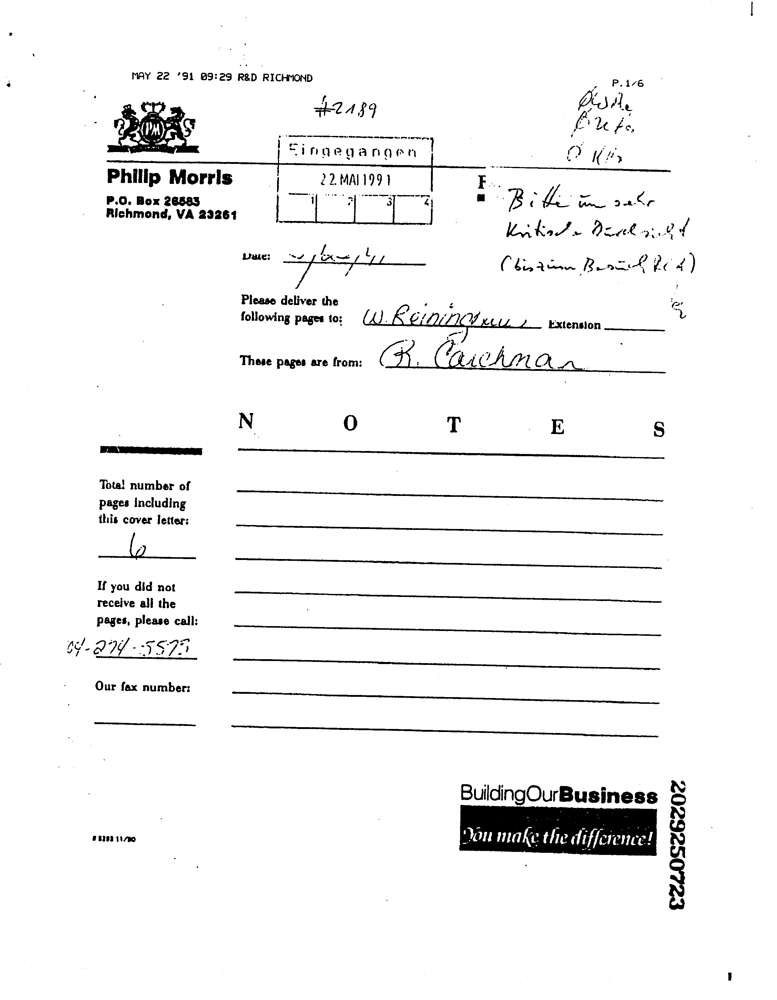 MAY 22 '91 09:29 R&D RICHMOND
P.1/6
#2189
Eingegangen
22. MAI 1991
1 2 3 4
Philip Morris
P.O. Box 26583
Richmond, VA 23261
F
Bitte um sehr
Kritische Durchsicht
(bis zum Besuch
Date:
Please deliver the
following pages to: W. Reininghaus Extension
These pages are from: R. Carchman
N O T E S
Total number of
pages including
this cover letter:
6
If you did not
receive all the
pages, please call:
04-274-5575
Our fax number:
BuildingOurBusiness
You make the difference!
# 8203 11/90
2029250723